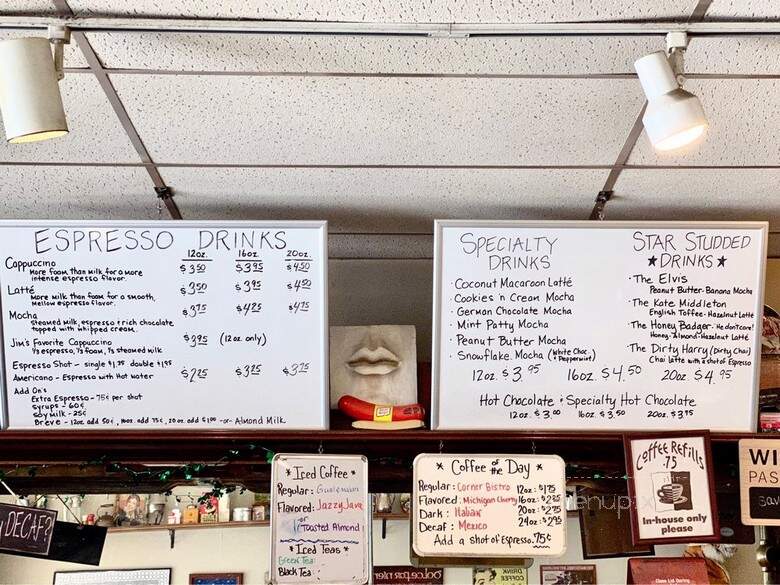 ESPRESSO DRINKS
12oz. 16oz. 20oz.
Cappuccino $3.50 $3.95 $4.50
More foam than milk for a more
intense espresso flavor.
Latté $3.50 $3.95 $4.50
More milk than foam for a smooth,
mellow espresso flavor.
Mocha $3.75 $4.25 $4.75
steamed milk, espresso + rich chocolate
topped with whipped cream.
Jim's Favorite Cappuccino $3.95 (12oz only)
⅓ espresso, ⅓ foam, ⅓ steamed milk
Espresso Shot - single $1.35 double $1.95
Americano - Espresso with Hot water $2.25 $3.25 $3.75
Add On's
Extra Espresso - 75¢ per shot
syrups - 60¢
soy milk - 25¢
Breve - 12oz add 50¢, 16oz add 75¢, 20oz add $1.00 -or- Almond Milk
SPECIALTY
DRINKS
· Coconut Macaroon Latté
· Cookies n Cream Mocha
· German Chocolate Mocha
· Mint Patty Mocha
· Peanut Butter Mocha
· Snowflake Mocha (White Choc. + Peppermint)
STAR STUDDED
★DRINKS★
· The Elvis
Peanut Butter-Banana Mocha
· The Kate Middleton
English Toffee-Hazelnut Latté
· The Honey Badger-He don't care!
Honey-Almond-Hazelnut Latté
· The Dirty Harry (Dirty Chai)
Chai latte with a shot of Espresso
12oz. $3.95 16oz. $4.50 20oz. $4.95
Hot Chocolate + Specialty Hot Chocolate
12oz. $3.00 16oz. $3.50 20oz. $3.75
* Iced Coffee *
Regular: Guatemalan
Flavored: Jazzy Java
or
Toasted Almond
* Iced Teas *
Green Tea:
Black Tea:
* Coffee of the Day *
Regular: Corner Bistro 12oz: $1.75
Flavored: Michigan Cherry 16oz: $2.25
Dark: Italian 20oz: $2.75
Decaf: Mexico 24oz: $2.95
Add a shot of espresso .75¢
Coffee Refills
.75
In-house only
please
WI
PAS
DECAF?